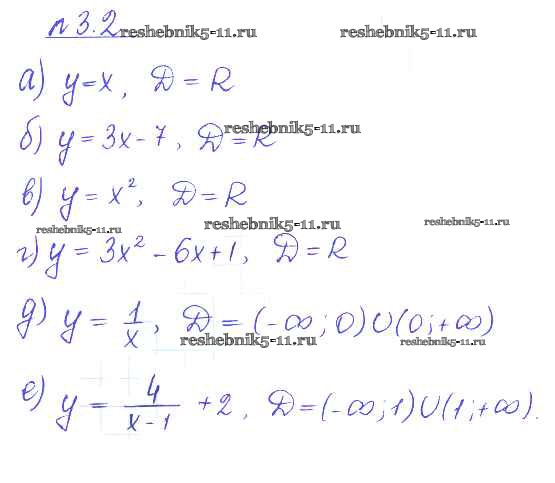 п 3.2 reshebnik5-11.ru reshebnik5-11.ru
а) y = x, D = R
reshebnik5-11.ru
б) y = 3x - 7, D = R
в) y = x², D = R
reshebnik5-11.ru reshebnik5-11.ru reshebnik5-11.ru
г) y = 3x² - 6x + 1, D = R
д) y = 1/x, D = (-∞; 0) ∪ (0; +∞)
reshebnik5-11.ru reshebnik5-11.ru
е) y = 4/(x - 1) + 2, D = (-∞; 1) ∪ (1; +∞).